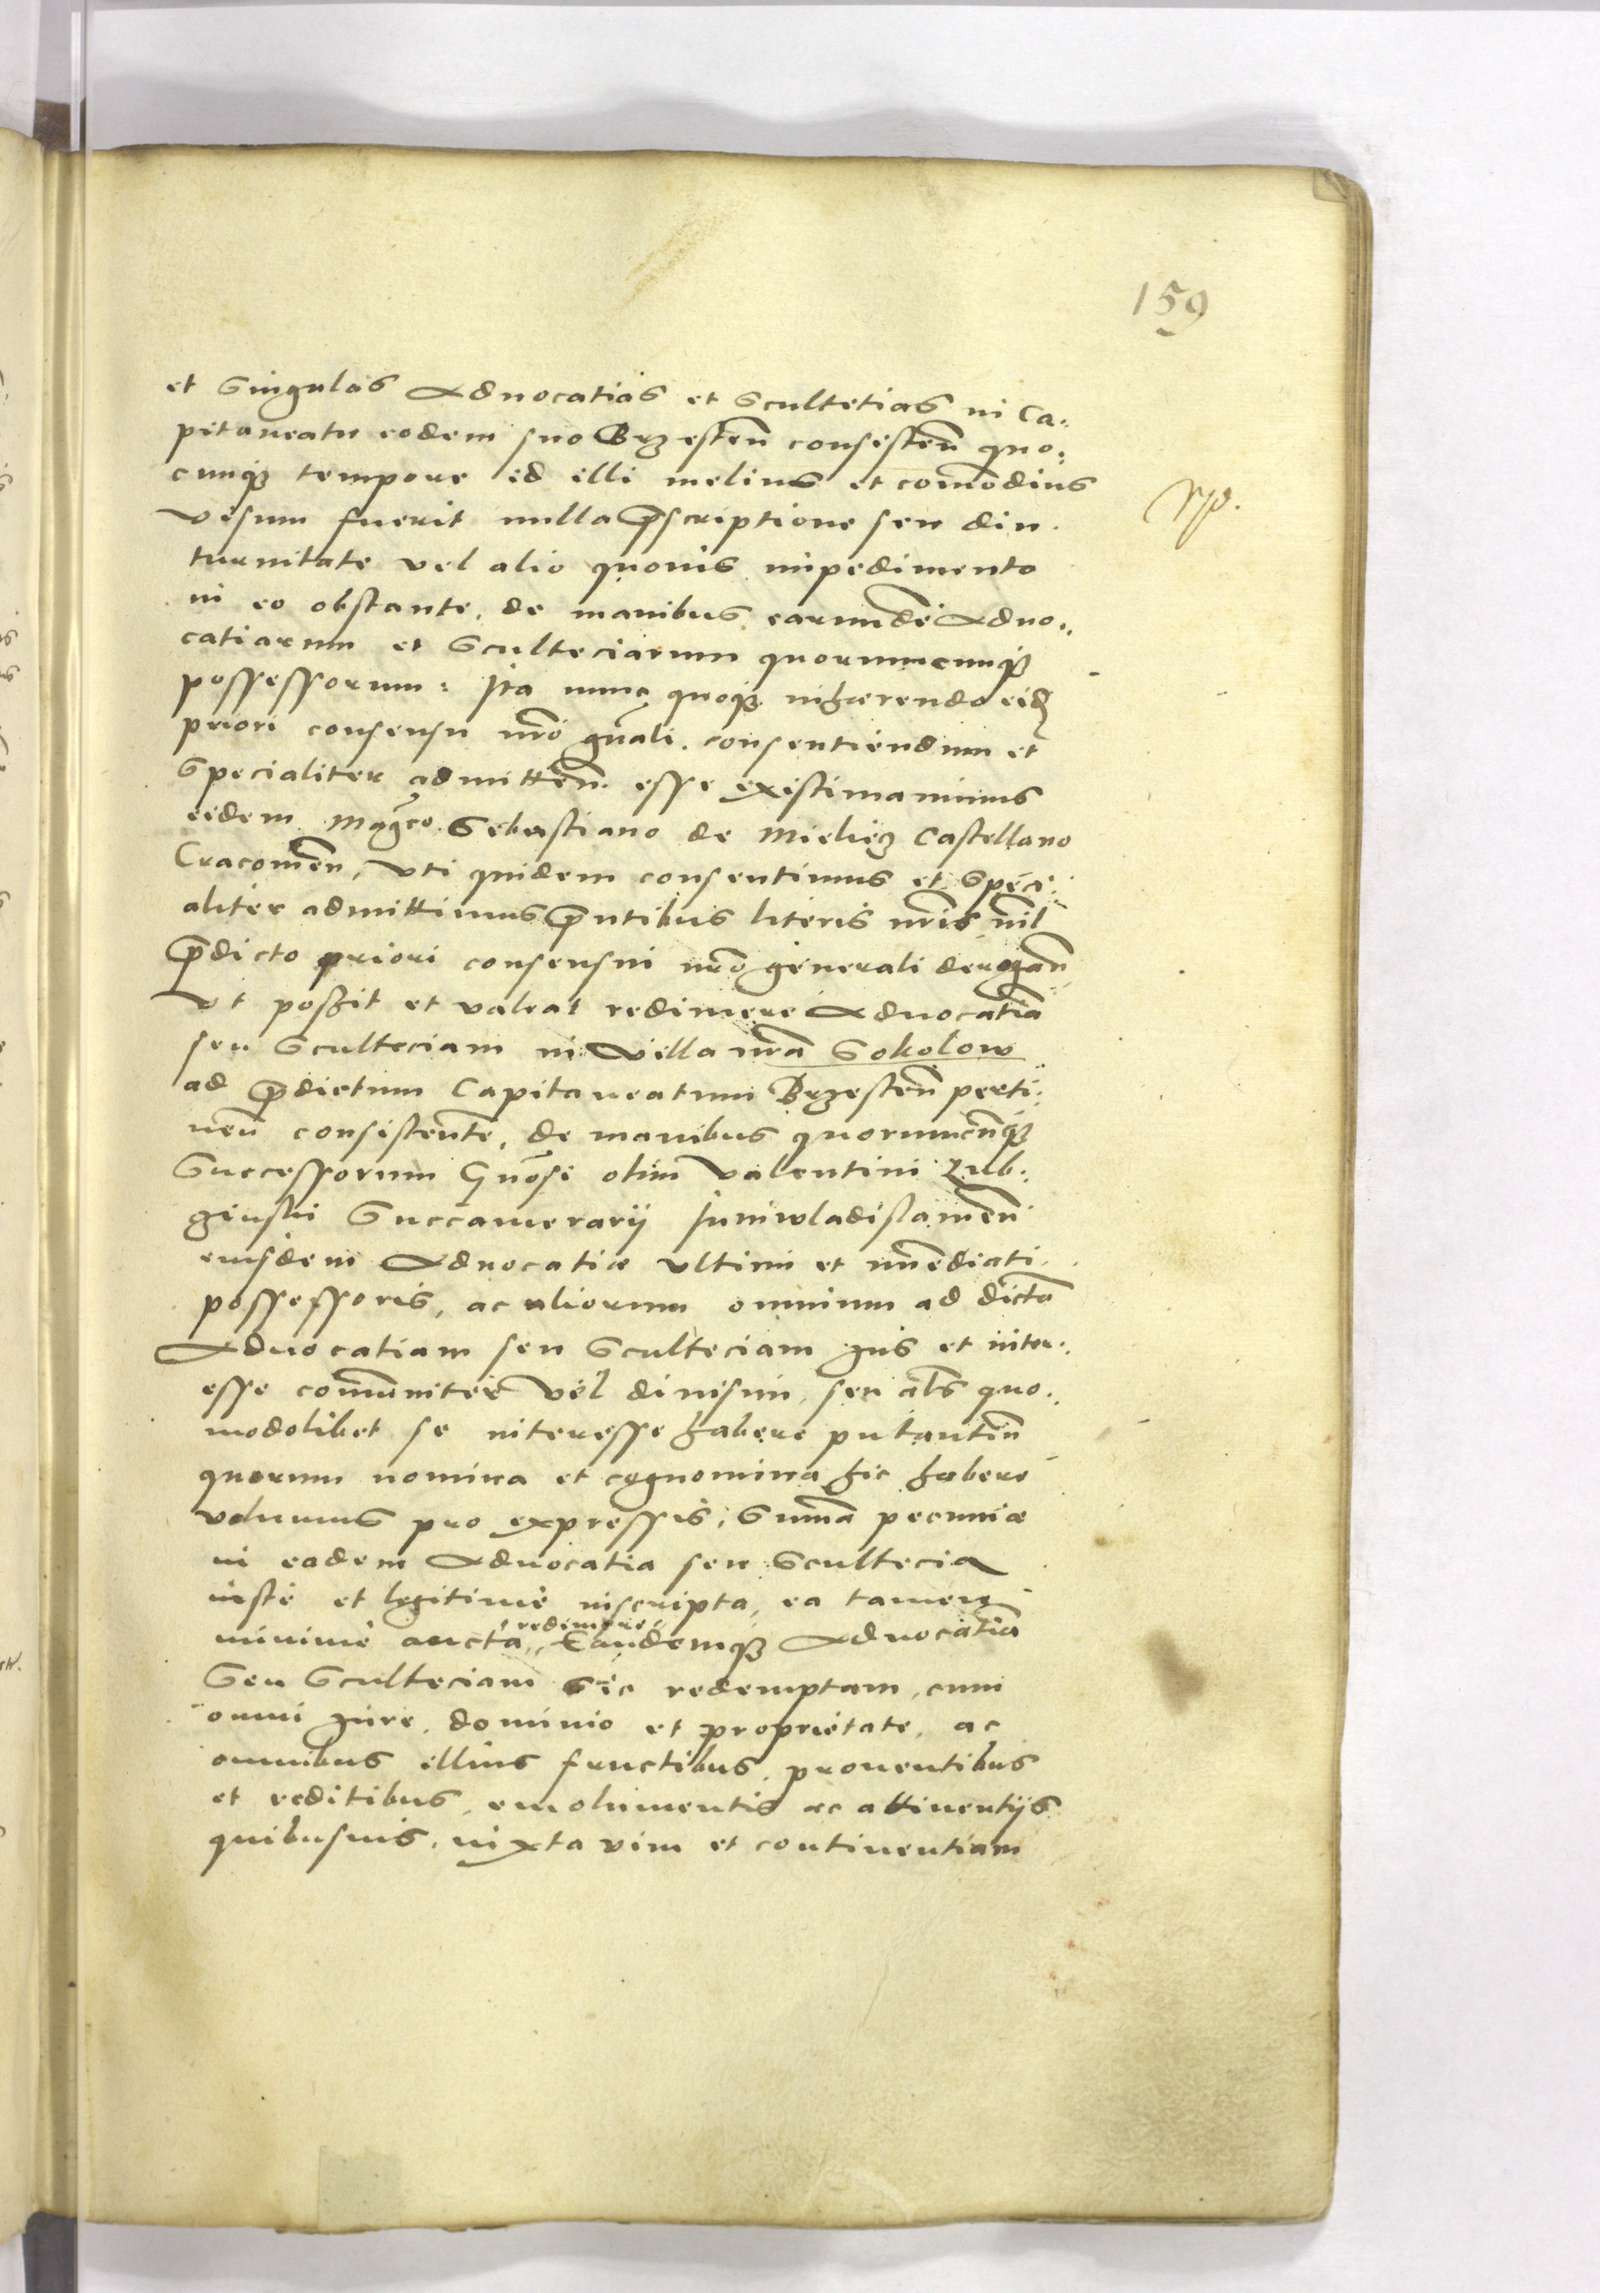 159
et singulas Advocatias et Scultetias in Ca,
pitaneatu eodem suo Brzesteñ consisteñ quo,
cunq3 tempore id illi melius et com̃odius
visum fuerit nulla p̃scriptione seu diu
turnitate vel alio quovis impedimento
in eo obstante, de manibus earundẽ Advo,
catiarum et Sculteciarum quorumcunq3
possessorum: Ita nunc quoq3 inhærendo eid̃
priori consensu nr̃o gñali, consentiendum et
specialiter admitteñ esse existimavimus
eidem Mag̃co Sebastiano de Mieliecz Castellano
Cracovieñ, Uti quidem consentimus et speci,
aliter admittimus p̃ntibus literis nr̃is, nil
p̃dicto priori consensui nr̃o generali derogañ
Ut possit et valeat redimere Advocatiã
seu Sculteciam in villa nr̃a Sokolow
ad p̃dictum Capitaneatum Brzesteñ perti,
neñ consistentẽ, de manibus quorumcunq3
Successorum Gñosi olim Valentini Lub,
Succamerarij Juniwladislavieñ
eiusdem Advocatiæ ultimi et im̃ediati
possessoris, ac aliorum omnium ad dictã
Advocatiam seu Sculteciam jus et inter,
esse com̃uniter vel divisim, seu al̃s quo,
modolibet se interesse habere putantiũ
quorum nomina et cognomina hic habere
volumus pro expressis, Sum̃a pecuniæ
in eadem Advocatia seu Scultecia
iuste et legitime inscripta, ea tamen
redimere
minime aucta, Eandemq3 Advocatiã
Seu Sculteciam sic redemptam, cum
omni jure, dominio et proprietate, ac
omnibus illius fructibus, proventibus
et reditibus, emolumentis ac attinentijs
quibusvis, iuxta vim et continentiam